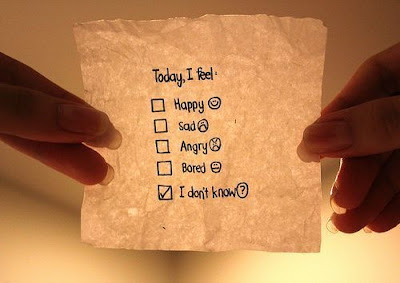 Today, I feel:
Happy
Sad
Angry
Bored
I don't know ?